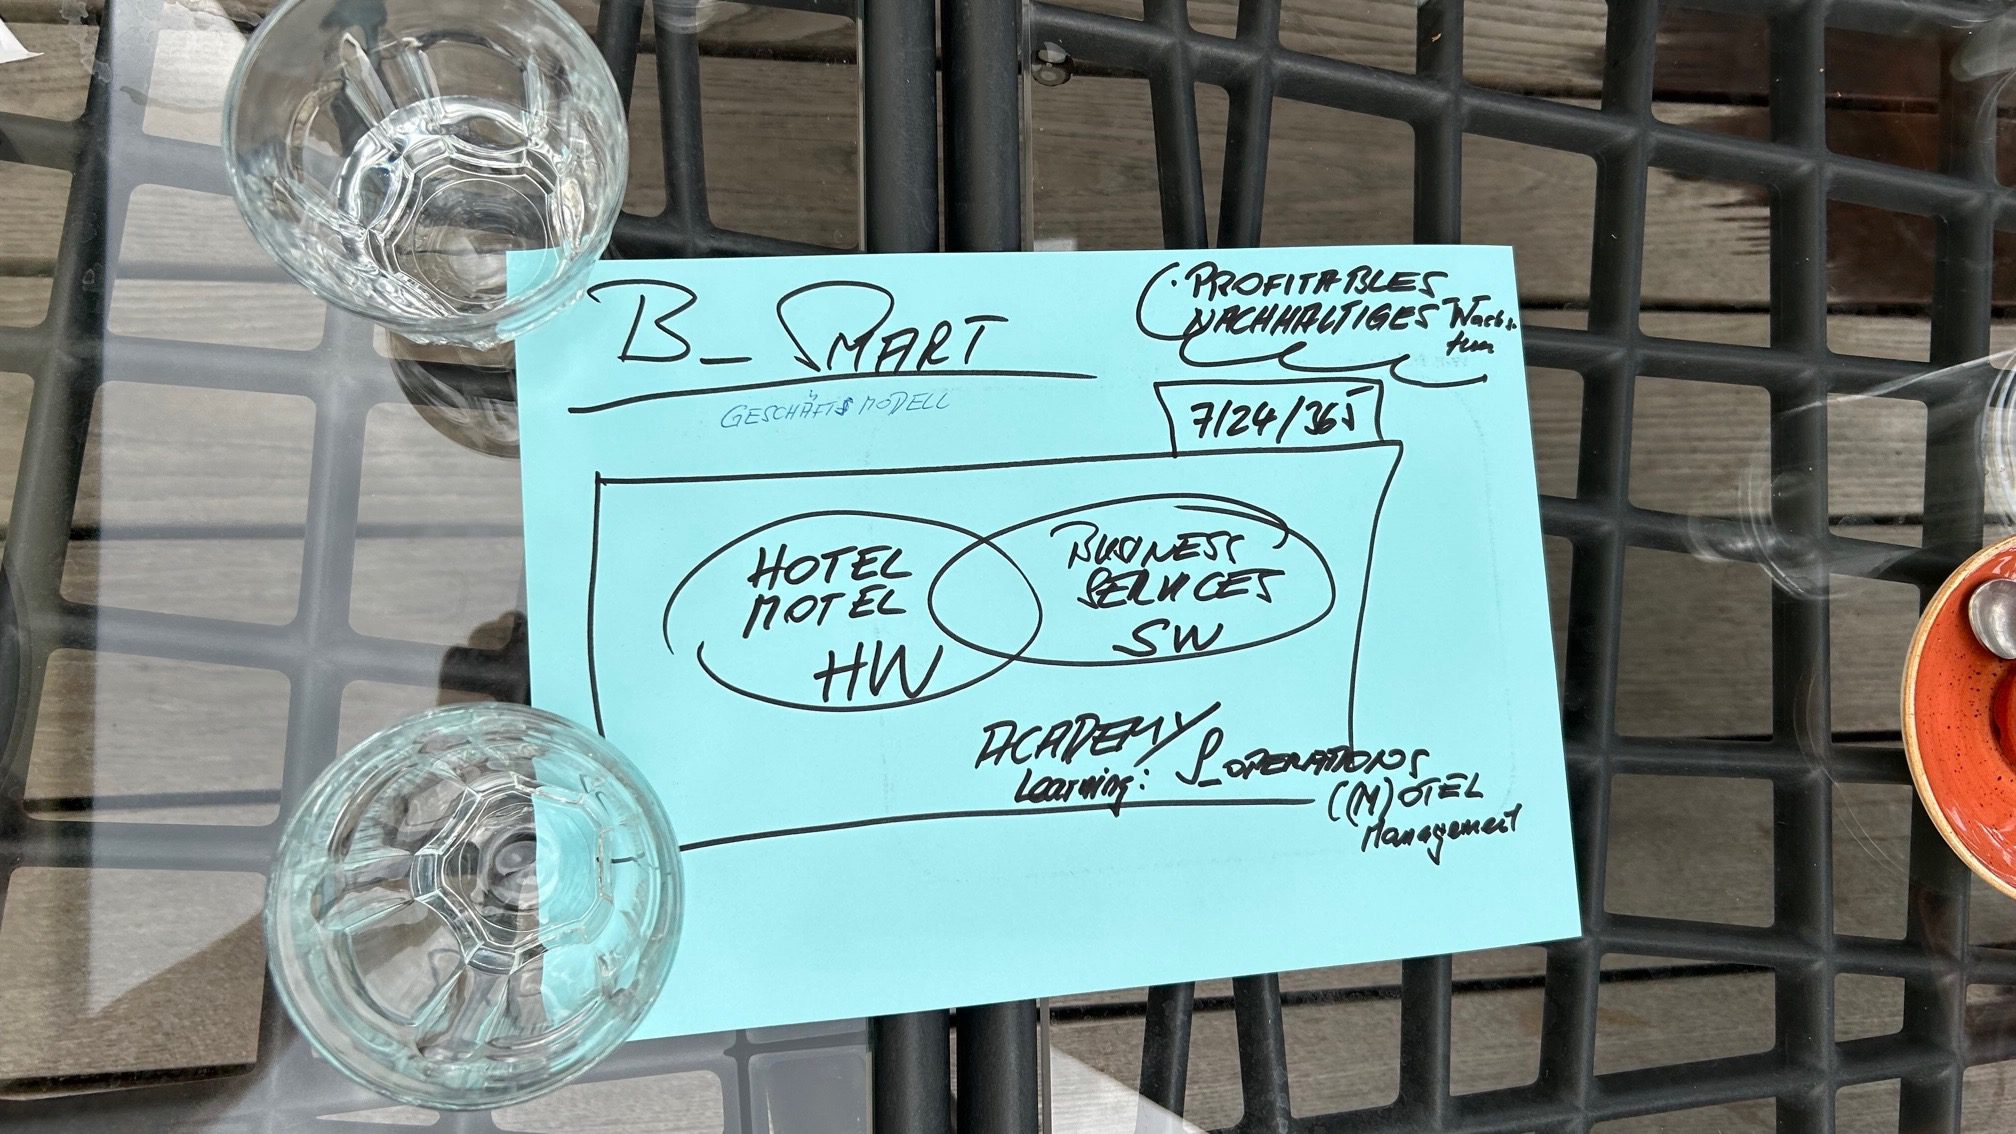 B_SMART
GESCHÄFTSMODELL
PROFITABLES
NACHHALTIGES Wachs-
tum
7/24/365
HOTEL
MOTEL
HW
BUSINESS
SERVICES
SW
ACADEMY
Learning: OPERATIONS
(M)OTEL
Management